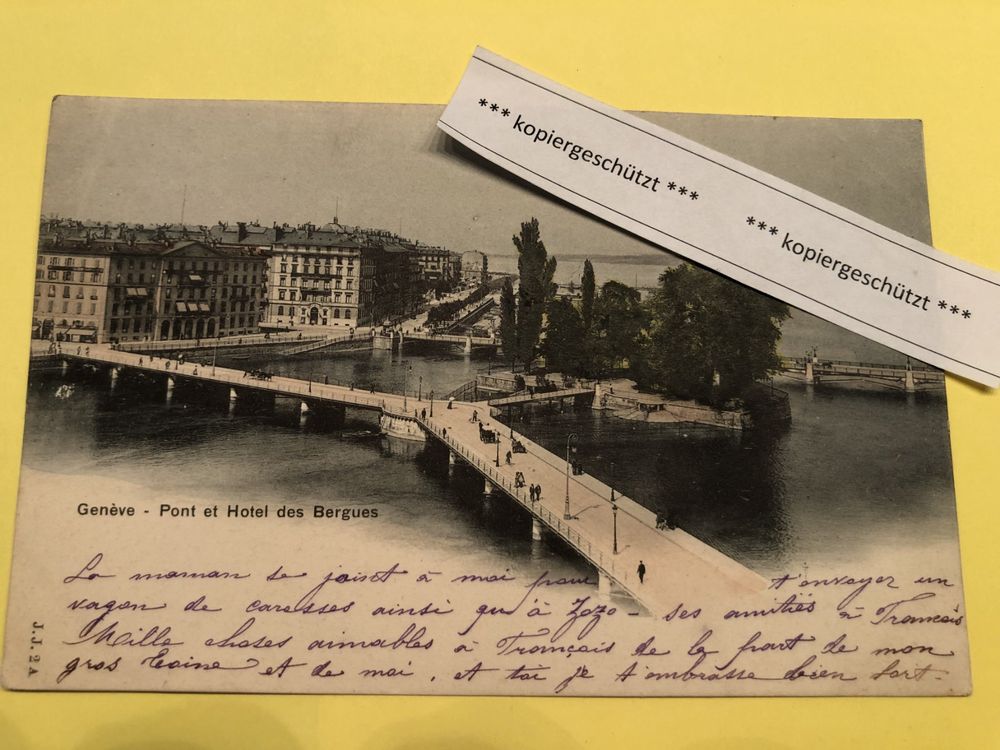 *** kopiergeschützt ***
*** kopiergeschützt ***
Genève - Pont et Hotel des Bergues
J.J. 2 A
La maman se joint à moi pour t'envoyer un
vagon de caresses ainsi qu'à Zozo - ses amitiés à François
Mille choses aimables à François de la part de mon
gros et de moi, et toi je t'embrasse bien fort.